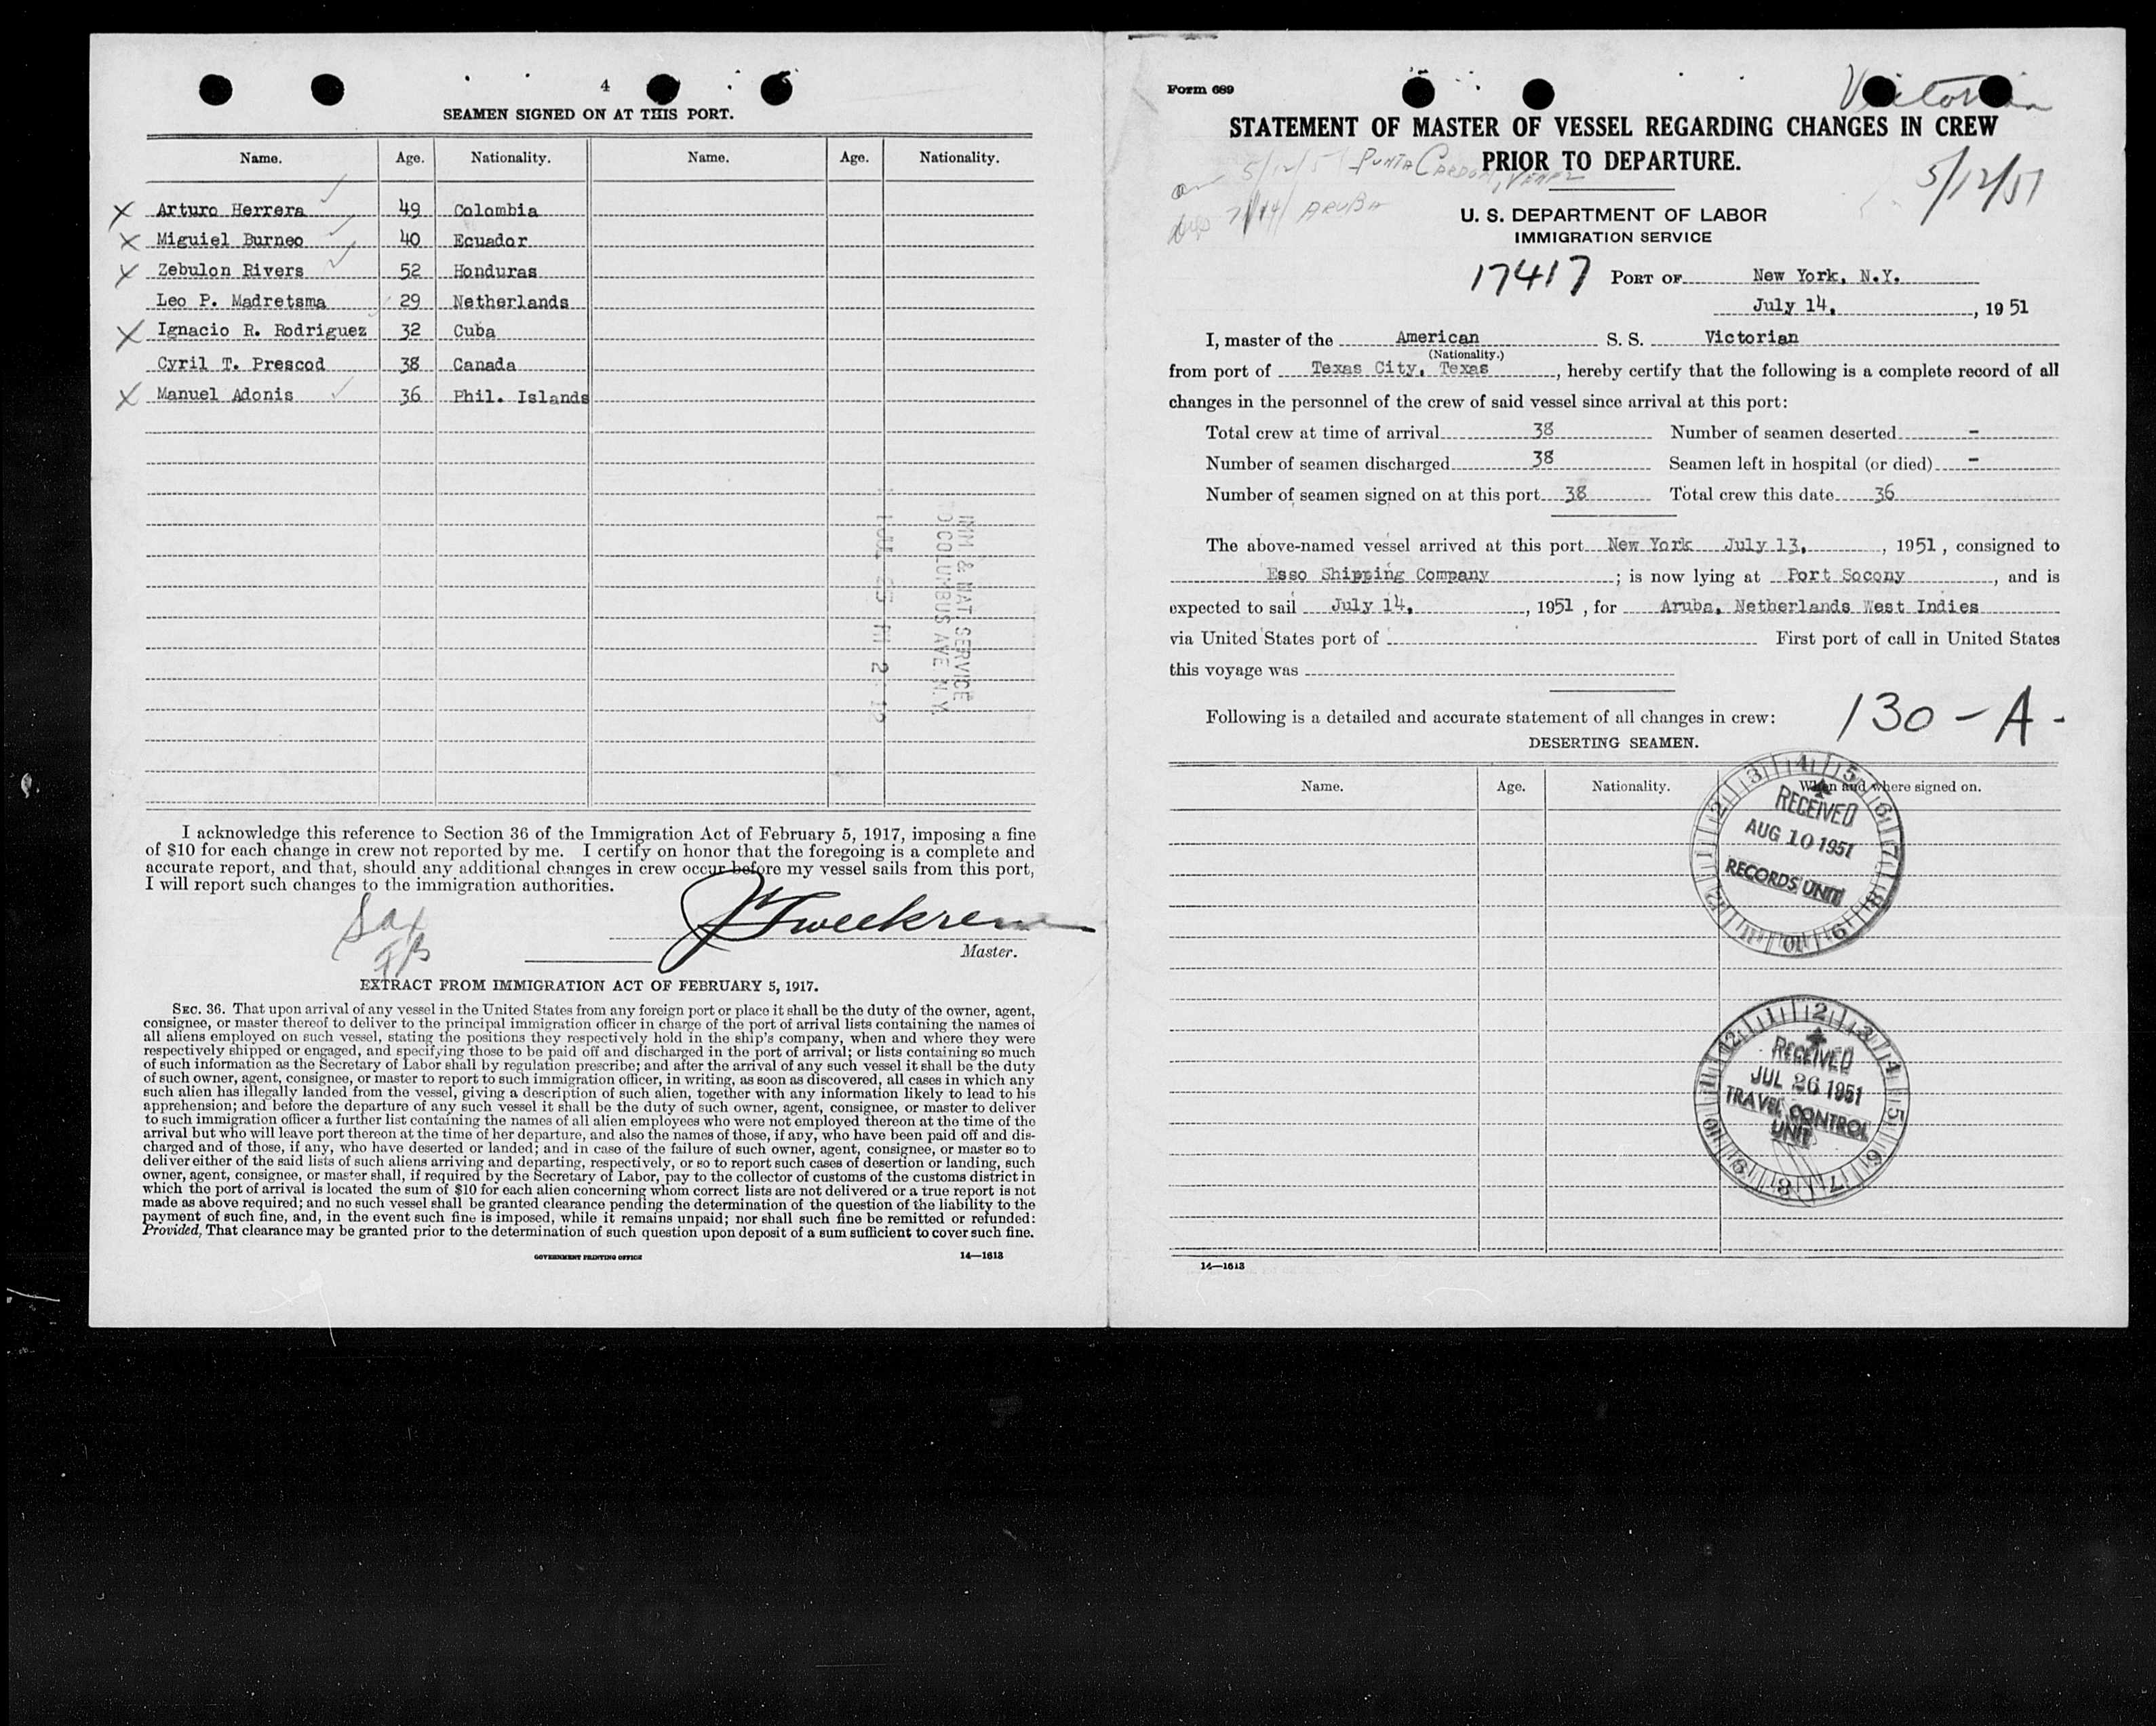 4
SEAMEN SIGNED ON AT THIS PORT.
Name. Age. Nationality. Name. Age. Nationality.
X Arturo Herrera 49 Colombia
X Miguiel Burneo 40 Ecuador
X Zebulon Rivers 52 Honduras
Leo P. Madretsma 29 Netherlands
X Ignacio R. Rodriguez 32 Cuba
Cyril T. Prescod 38 Canada
X Manuel Adonis 36 Phil. Islands
IMM & NAT SERVICE
COLUMBUS AVE N.Y.
I acknowledge this reference to Section 36 of the Immigration Act of February 5, 1917, imposing a fine
of $10 for each change in crew not reported by me. I certify on honor that the foregoing is a complete and
accurate report, and that, should any additional changes in crew occur before my vessel sails from this port,
I will report such changes to the immigration authorities.
Master.
EXTRACT FROM IMMIGRATION ACT OF FEBRUARY 5, 1917.
SEC. 36. That upon arrival of any vessel in the United States from any foreign port or place it shall be the duty of the owner, agent,
consignee, or master thereof to deliver to the principal immigration officer in charge of the port of arrival lists containing the names of
all aliens employed on such vessel, stating the positions they respectively hold in the ship's company, when and where they were
respectively shipped or engaged, and specifying those to be paid off and discharged in the port of arrival; or lists containing so much
of such information as the Secretary of Labor shall by regulation prescribe; and after the arrival of any such vessel it shall be the duty
of such owner, agent, consignee, or master to report to such immigration officer, in writing, as soon as discovered, all cases in which any
such alien has illegally landed from the vessel, giving a description of such alien, together with any information likely to lead to his
apprehension; and before the departure of any such vessel it shall be the duty of such owner, agent, consignee, or master to deliver
to such immigration officer a further list containing the names of all alien employees who were not employed thereon at the time of the
arrival but who will leave port thereon at the time of her departure, and also the names of those, if any, who have been paid off and dis-
charged and of those, if any, who have deserted or landed; and in case of the failure of such owner, agent, consignee, or master so to
deliver either of the said lists of such aliens arriving and departing, respectively, or so to report such cases of desertion or landing, such
owner, agent, consignee, or master shall, if required by the Secretary of Labor, pay to the collector of customs of the customs district in
which the port of arrival is located the sum of $10 for each alien concerning whom correct lists are not delivered or a true report is not
made as above required; and no such vessel shall be granted clearance pending the determination of the question of the liability to the
payment of such fine, and, in the event such fine is imposed, while it remains unpaid; nor shall such fine be remitted or refunded:
Provided, That clearance may be granted prior to the determination of such question upon deposit of a sum sufficient to cover such fine.
GOVERNMENT PRINTING OFFICE 14—1613
Form 689
Victorian
STATEMENT OF MASTER OF VESSEL REGARDING CHANGES IN CREW
PRIOR TO DEPARTURE.
5/12/51 Punta Cardon, Venez
7/14/ ARUBA
5/12/51
U. S. DEPARTMENT OF LABOR
IMMIGRATION SERVICE
17417 PORT OF New York, N.Y.
July 14, , 19 51
I, master of the American S. S. Victorian
(Nationality.)
from port of Texas City, Texas , hereby certify that the following is a complete record of all
changes in the personnel of the crew of said vessel since arrival at this port:
Total crew at time of arrival 38 Number of seamen deserted -
Number of seamen discharged 38 Seamen left in hospital (or died) -
Number of seamen signed on at this port 38 Total crew this date 36
The above-named vessel arrived at this port New York July 13, , 1951 , consigned to
Esso Shipping Company ; is now lying at Port Socony , and is
expected to sail July 14, , 1951 , for Aruba, Netherlands West Indies
via United States port of First port of call in United States
this voyage was
Following is a detailed and accurate statement of all changes in crew:
130 - A -
DESERTING SEAMEN.
Name. Age. Nationality. When and where signed on.
RECEIVED
AUG 10 1951
RECORDS UNIT
RECEIVED
JUL 26 1951
TRAVEL CONTROL
UNIT
14—1613